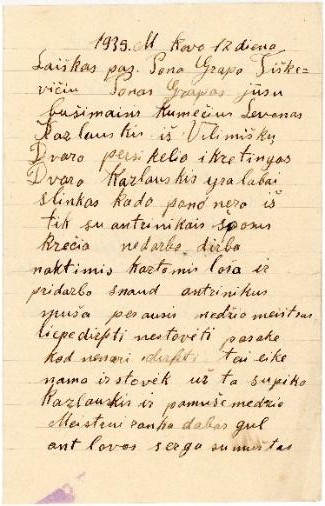 1935. M Kovo 12 diena
Laiškas pas. Pona Grapo Tiške=
vičiu Ponas Grapas jūsu
bušimains Kumečius Levonas
Kazlauskis iš Vilimiškų
Dvaro persikelio i kretingos
Dvaro Kazlauskis yra labai
slinkas kado pono nera iš
tik su antrinikais šposus
krečia nedarbo dirba
naktimis kaztomis loša ir
pridarbo snaud antrinikus
muša perausis medžio meistras
liepe dirpti nestovėti pasake
kad nenori dirpti tai eike
namo ir stovėk už ta supiko
Kazlauskis ir pamuše medžio
Meistrui ranka dabar gul
ant lovos serga sumuštas